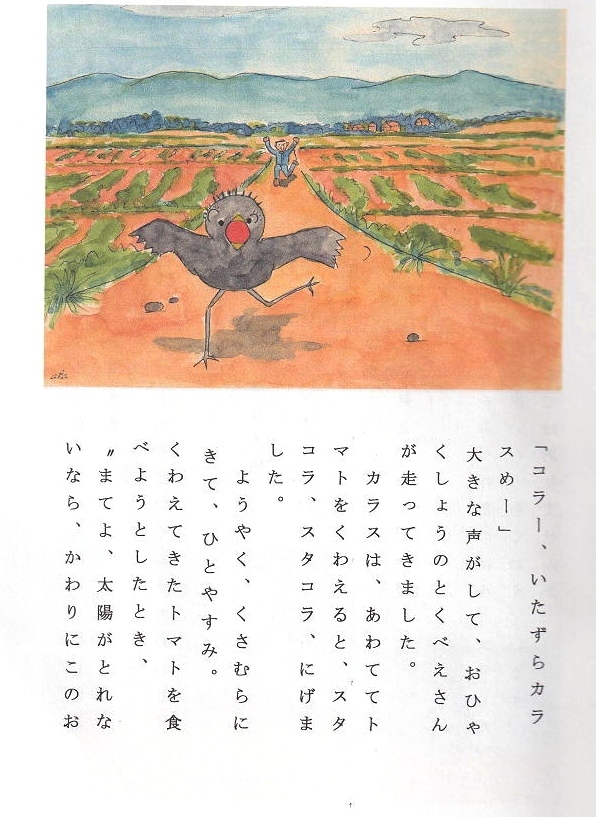 「コラー、いたずらカラ
スめー」
大きな声がして、おひゃ
くしょうのとくべえさん
が走ってきました。
カラスは、あわててト
マトをくわえると、スタ
コラ、スタコラ、にげま
した。
ようやく、くさむらに
きて、ひとやすみ。
くわえてきたトマトを食
べようとしたとき、
〝まてよ、太陽がとれな
いなら、かわりにこのお